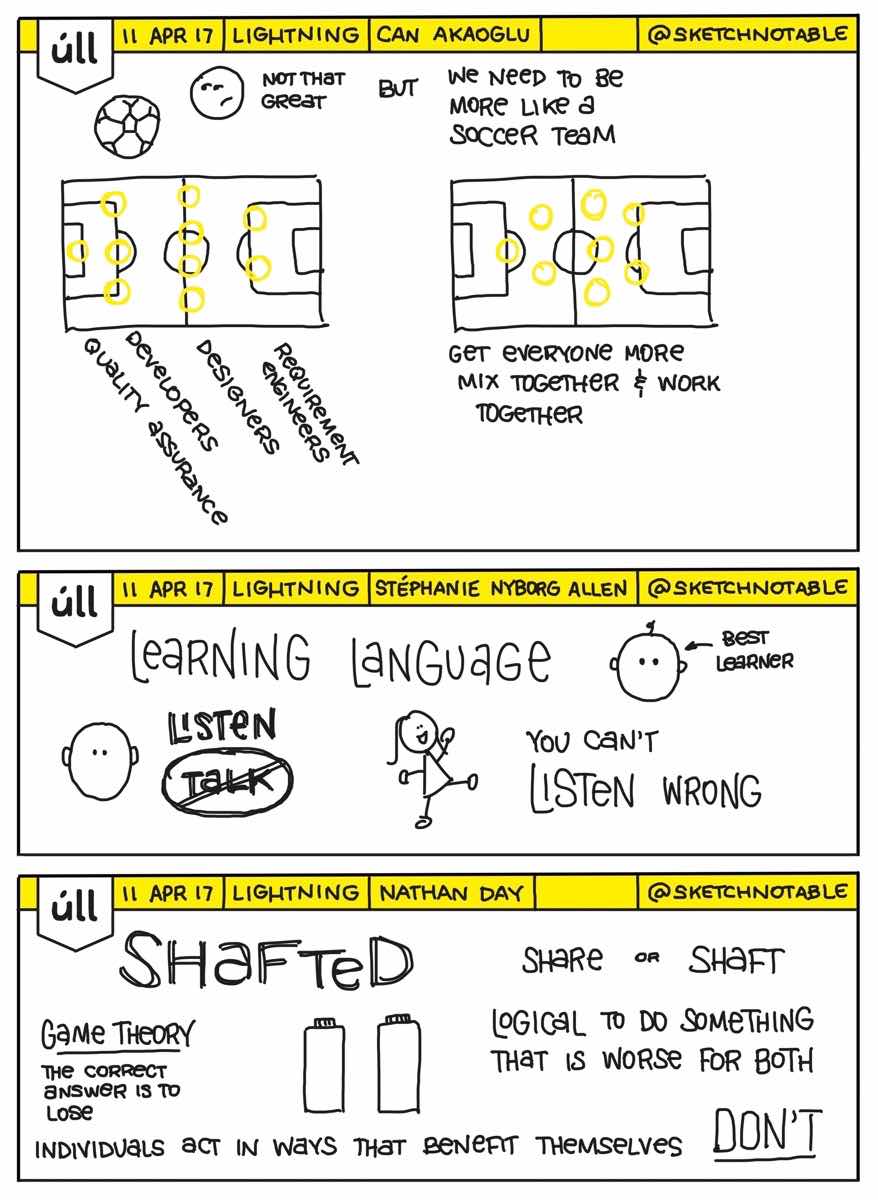 úll
11 APR 17 LIGHTNING CAN AKAOGLU @SKETCHNOTABLE
NOT THAT
GREAT
BUT
WE NEED TO BE
MORE LIKE A
SOCCER TEAM
QUALITY ASSURANCE
DEVELOPERS
DESIGNERS
REQUIREMENT
ENGINEERS
GET EVERYONE MORE
MIX TOGETHER & WORK
TOGETHER
úll
11 APR 17 LIGHTNING STÉPHANIE NYBORG ALLEN @SKETCHNOTABLE
LEARNING LANGUAGE
BEST
LEARNER
LISTEN
TALK
YOU CAN'T
LISTEN WRONG
úll
11 APR 17 LIGHTNING NATHAN DAY @SKETCHNOTABLE
SHAFTED
SHARE OR SHAFT
GAME THEORY
THE CORRECT
ANSWER IS TO
LOSE
LOGICAL TO DO SOMETHING
THAT IS WORSE FOR BOTH
INDIVIDUALS ACT IN WAYS THAT BENEFIT THEMSELVES
DON'T